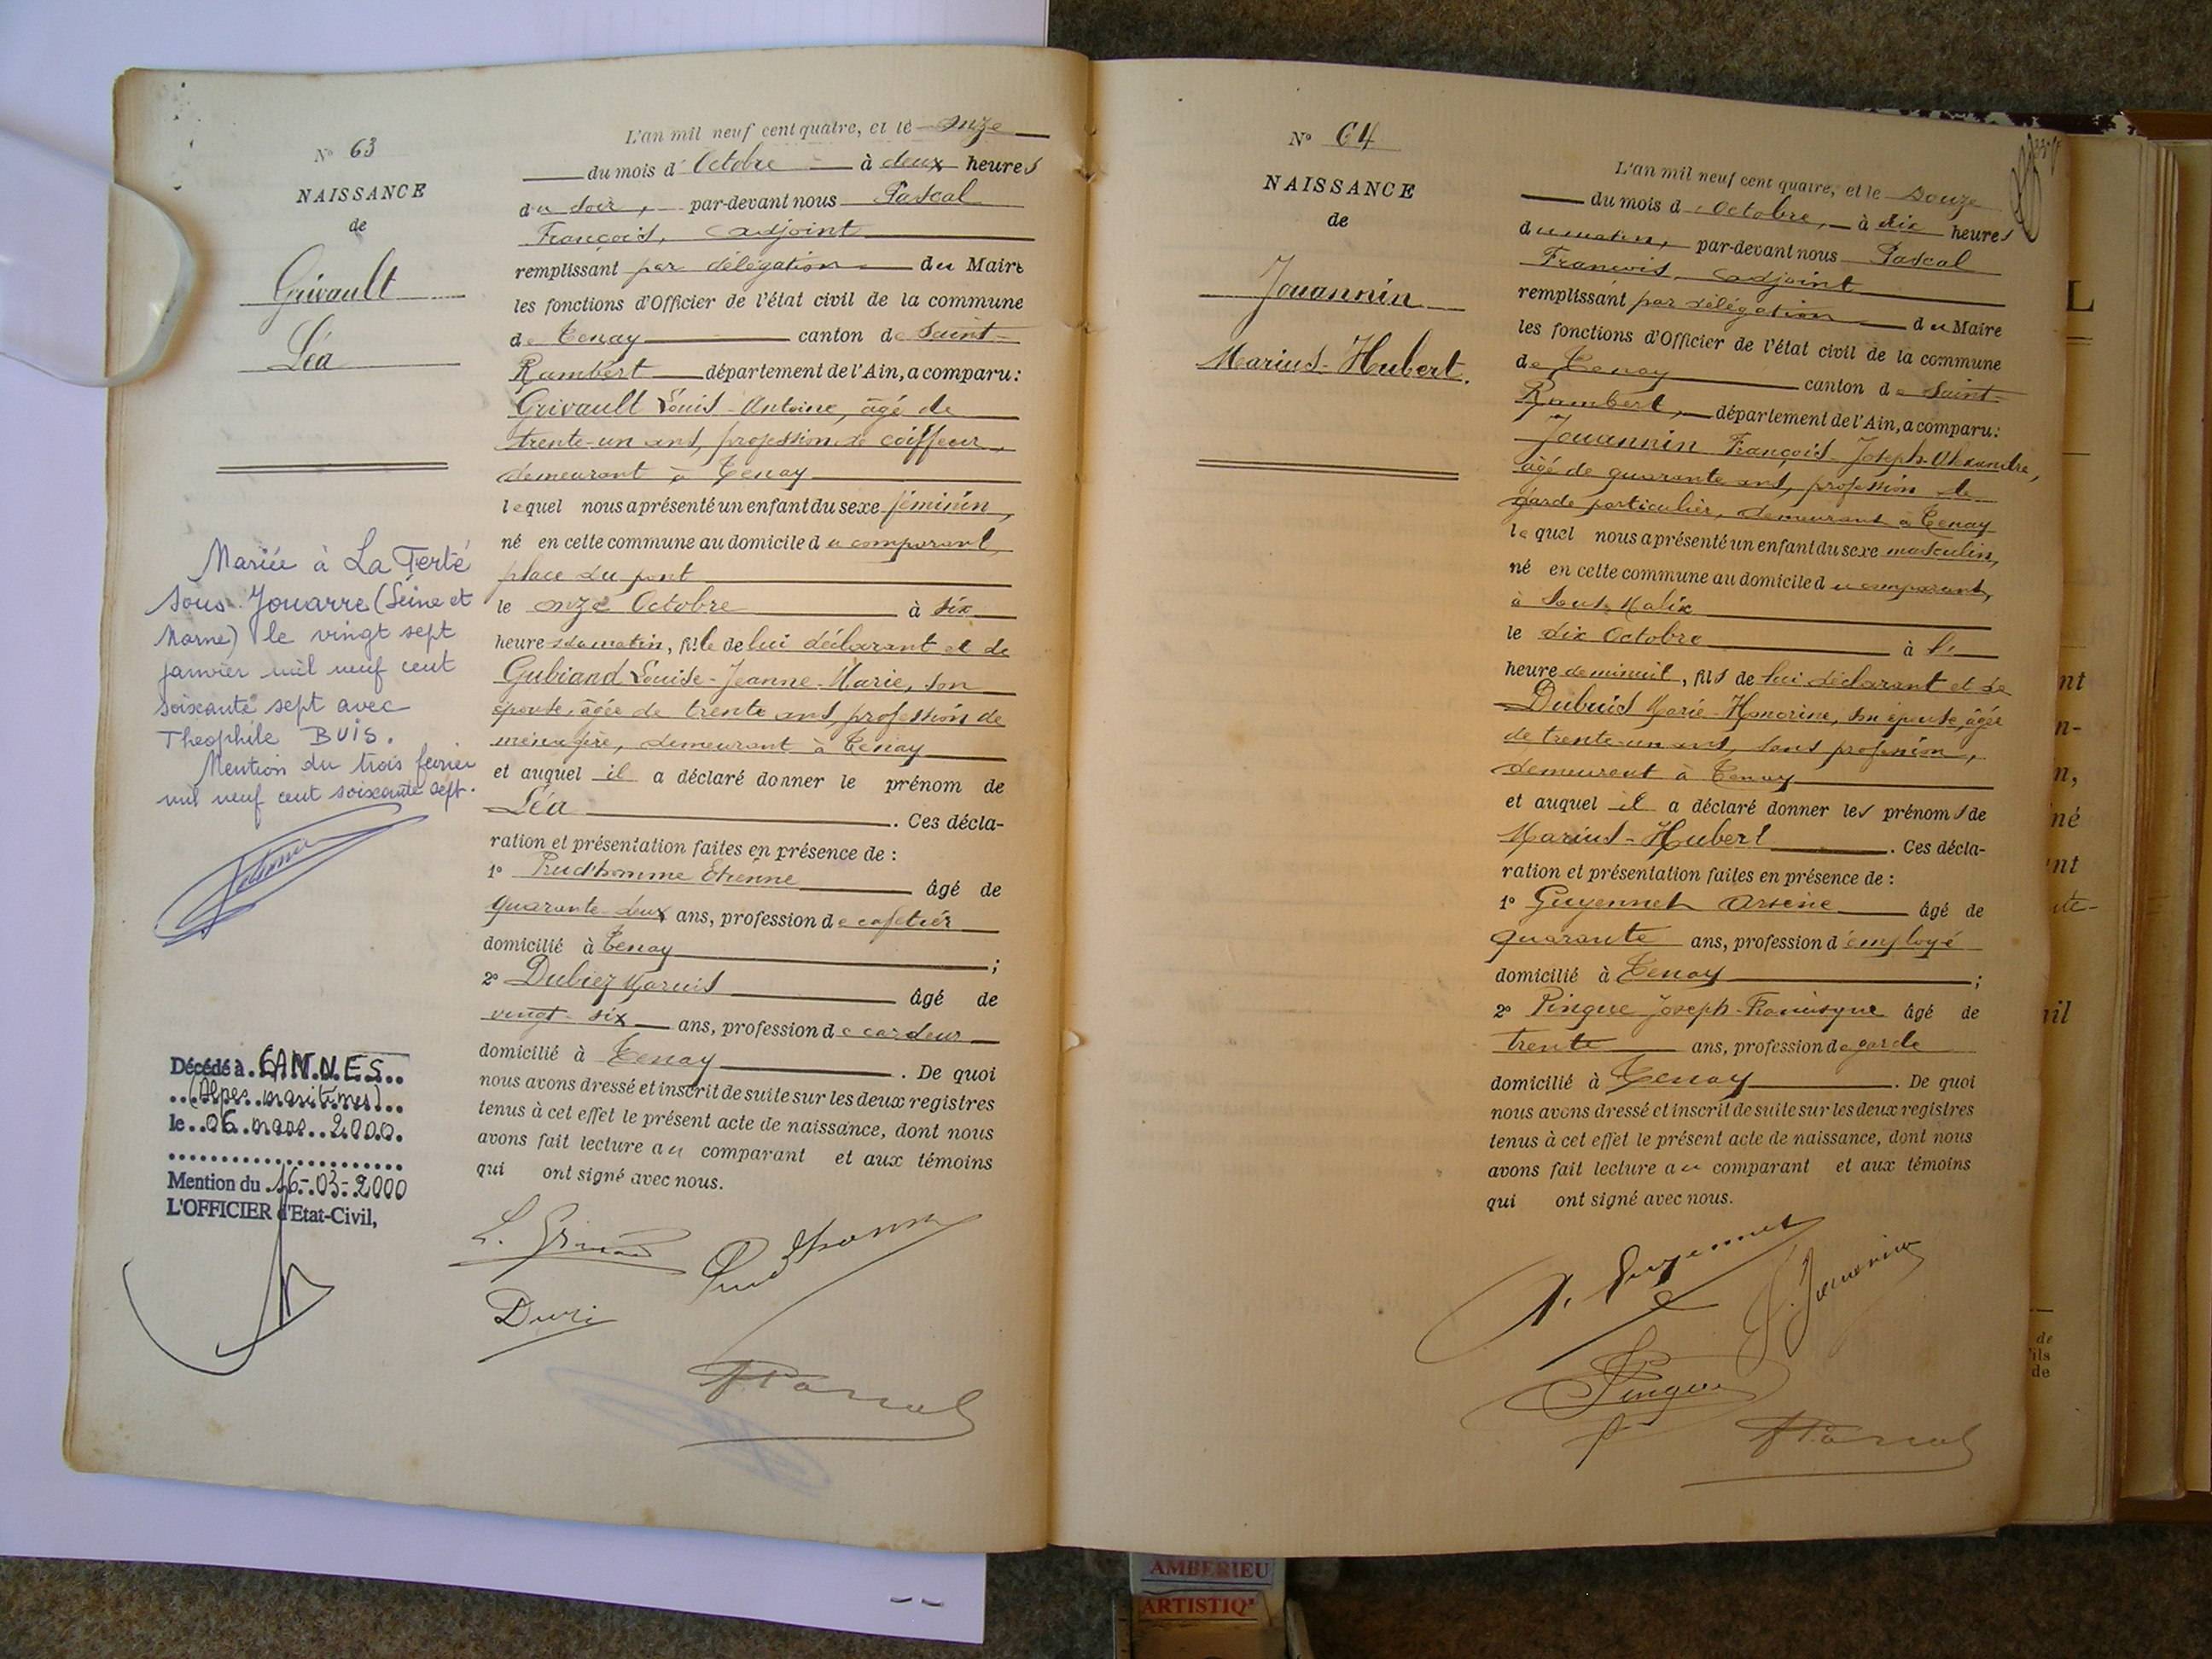 N° 63
NAISSANCE
de
Grivault
Léa
Mariée à La Ferté
sous Jouarre (Seine et
Marne) le vingt sept
janvier mil neuf cent
soixante sept avec
Theophile BUIS.
Mention du trois fevrier
mil neuf cent soixante sept.
Décédé à CANNES
(Alpes maritimes)
le 06 mars 2000.
Mention du 16-03-2000
L'OFFICIER d'Etat-Civil,
L'an mil neuf cent quatre, et le onze
du mois d' Octobre à deux heures
du soir, par-devant nous Pascal
François, adjoint
remplissant par délégation du Maire
les fonctions d'Officier de l'état civil de la commune
de Tenay canton de Saint-
Rambert département de l'Ain, a comparu:
Grivault Louis-Antoine, âgé de
trente-un ans, profession de coiffeur,
demeurant à Tenay
lequel nous a présenté un enfant du sexe féminin,
né en cette commune au domicile du comparant,
place du pont
le onze Octobre à six
heures du matin, fille de lui déclarant et de
Gubiand Louise-Jeanne-Marie, son
épouse, âgée de trente ans, profession de
ménagère, demeurant à Tenay
et auquel il a déclaré donner le prénom de
Léa. Ces décla-
ration et présentation faites en présence de :
1° Prudhomme Etienne âgé de
quarante-deux ans, profession de cafetier
domicilié à Tenay ;
2° Dubiez Marius âgé de
vingt-six ans, profession de cardeur
domicilié à Tenay. De quoi
nous avons dressé et inscrit de suite sur les deux registres
tenus à cet effet le présent acte de naissance, dont nous
avons fait lecture au comparant et aux témoins
qui ont signé avec nous.
Prudhomme
Pascal
N° 64
NAISSANCE
de
Jouannin
Marius-Hubert.
L'an mil neuf cent quatre, et le douze
du mois d'Octobre, à dix heures
du matin, par-devant nous Pascal
François, adjoint
remplissant par délégation du Maire
les fonctions d'Officier de l'état civil de la commune
de Tenay canton de Saint-
Rambert, département de l'Ain, a comparu:
Jouannin François-Joseph-Alexandre,
âgé de quarante ans, profession de
garde particulier, demeurant à Tenay
lequel nous a présenté un enfant du sexe masculin,
né en cette commune au domicile du comparant,
à Malix
le dix Octobre à l'
heure de minuit, fils de lui déclarant et de
Dubuis Marie-Honorine, son épouse, âgée
de trente-un ans, sans profession,
demeurant à Tenay
et auquel il a déclaré donner les prénoms de
Marius-Hubert. Ces décla-
ration et présentation faites en présence de :
1° Guyennet Arsène âgé de
quarante ans, profession d'employé
domicilié à Tenay ;
2° Pingue Joseph-Francisque âgé de
trente ans, profession de garde
domicilié à Tenay. De quoi
nous avons dressé et inscrit de suite sur les deux registres
tenus à cet effet le présent acte de naissance, dont nous
avons fait lecture au comparant et aux témoins
qui ont signé avec nous.
A. Guyennet
Jouannin
Pingue
Pascal
AMBERIEU
ARTISTIQ